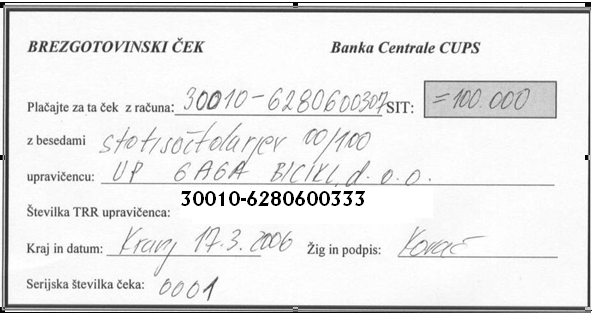 BREZGOTOVINSKI ČEK Banka Centrale CUPS
Plačajte za ta ček z računa: 30010-6280600307 SIT: =100.000
z besedami stotisočtolarjev 00/100
upravičencu: UP GAGA BICIKL d.o.o.
30010-6280600333
Številka TRR upravičenca:
Kraj in datum: Kranj 17.3.2006 Žig in podpis: Kovač
Serijska številka čeka: 0001